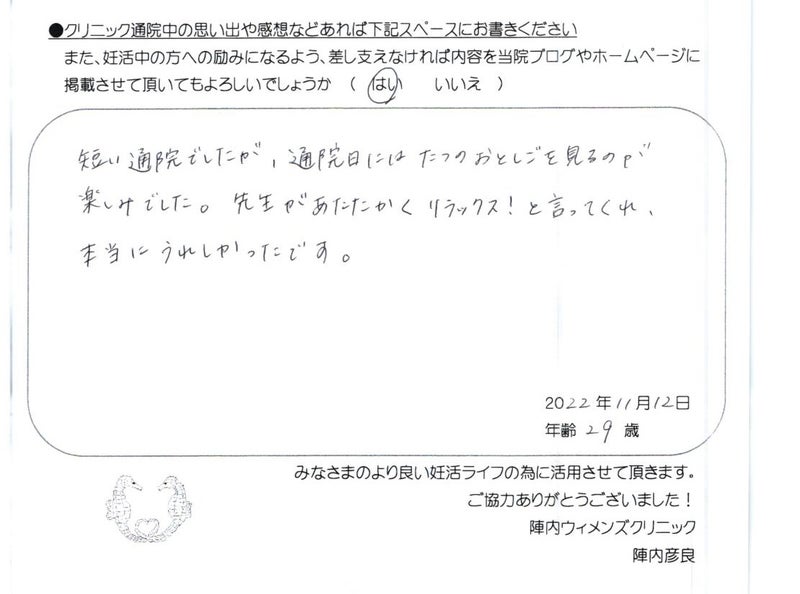 ●クリニック通院中の思い出や感想などあれば下記スペースにお書きください
また、妊活中の方への励みになるよう、差し支えなければ内容を当院ブログやホームページに
掲載させて頂いてもよろしいでしょうか （ はい いいえ ）
短い通院でしたが、通院日には たつのおとしごを見るのが
楽しみでした。先生があたたかく リラックス！と言ってくれ、
本当に うれしかったです。
2022年11月12日
年齢 29 歳
みなさまのより良い妊活ライフの為に活用させて頂きます。
ご協力ありがとうございました！
陣内ウィメンズクリニック
陣内彦良